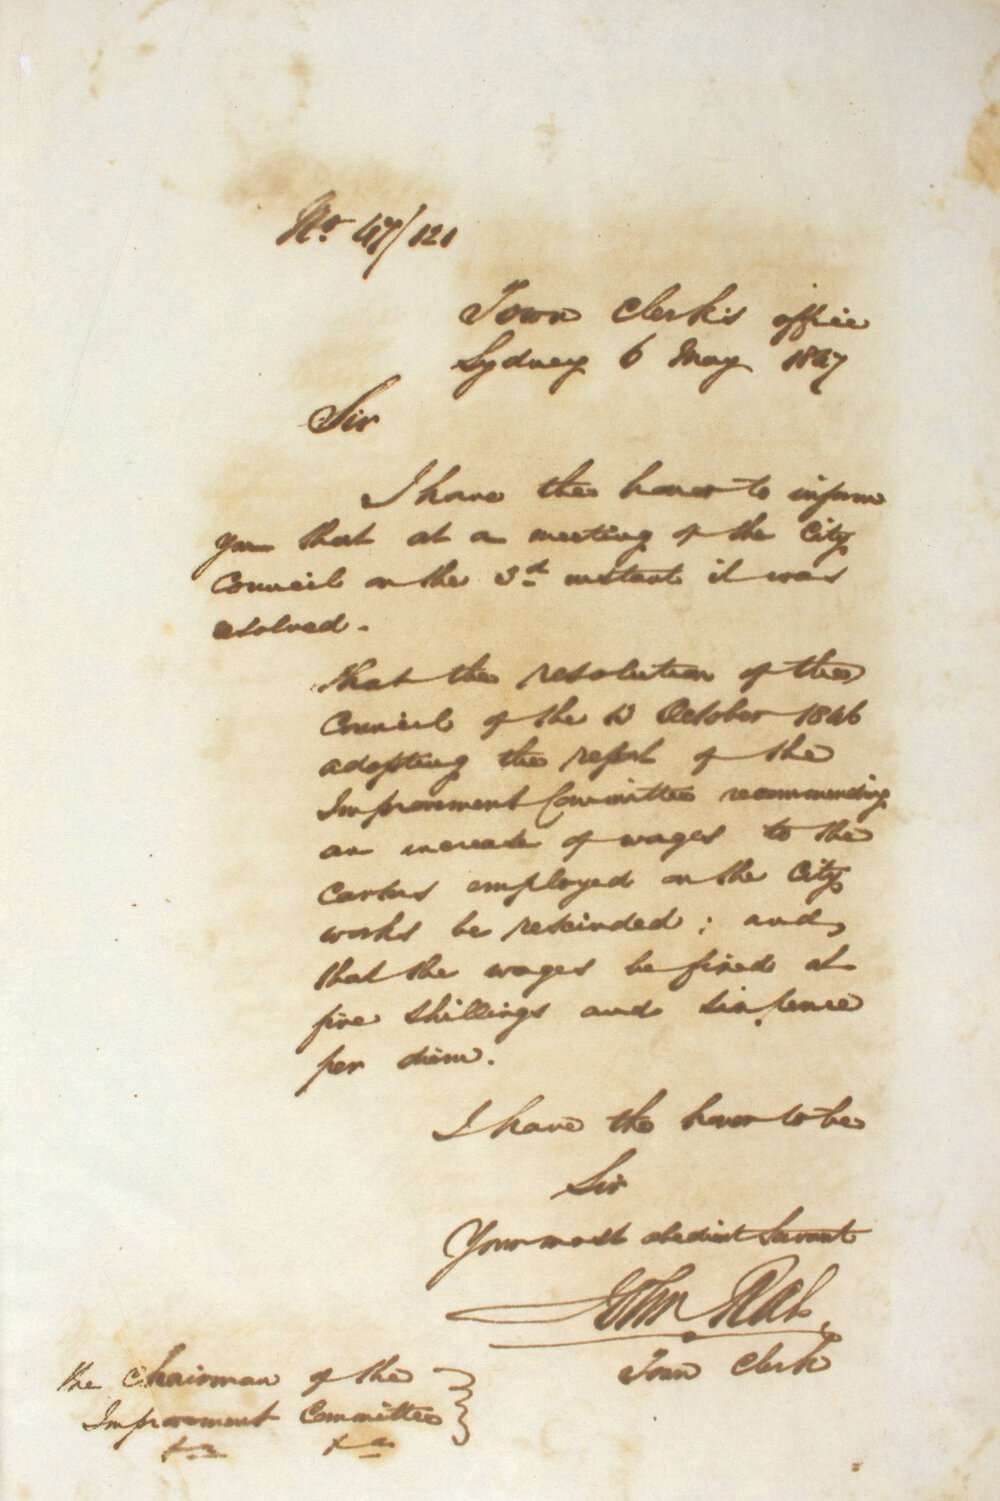 No. 47/121
Town Clerk's office
Sydney 6 May 1847
Sir
I have the honor to inform
you that at a meeting of the City
Council on the 3d instant it was
resolved.
that the resolution of the
Council of the October 1846
adopting the report of the
Improvement Committee recommending
an increase of wages to the
Carters employed on the City
works be rescinded; and
that the wages be fixed at
five shillings and sixpence
per diem.
I have the honor to be
Sir
Your most obedient Servant
John Rae
Town Clerk
the Chairman of the
Improvement Committee